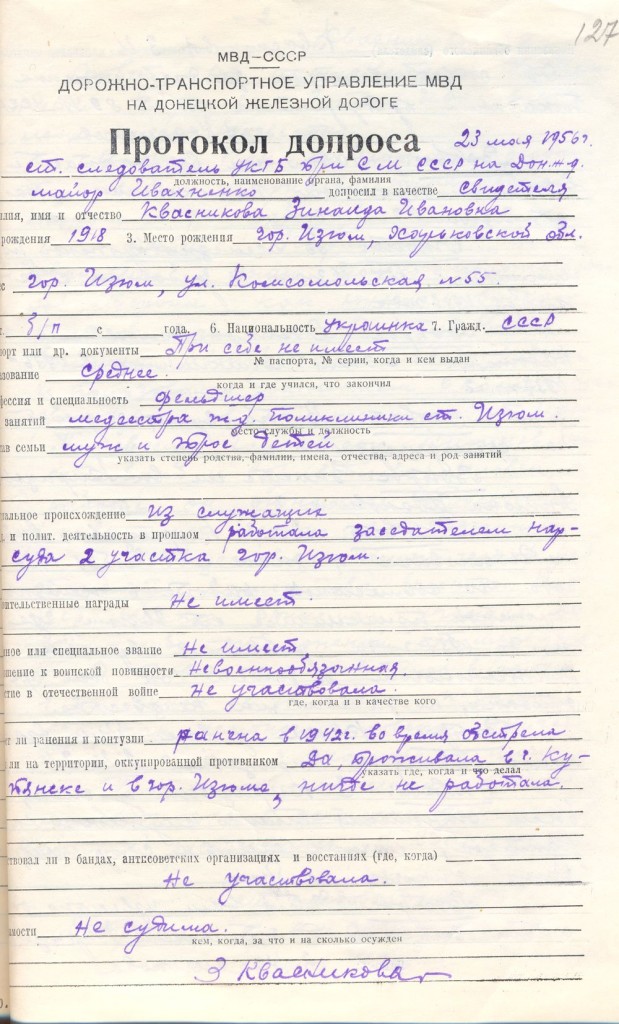 127
МВД–СССР
ДОРОЖНО-ТРАНСПОРТНОЕ УПРАВЛЕНИЕ МВД
НА ДОНЕЦКОЙ ЖЕЛЕЗНОЙ ДОРОГЕ
Протокол допроса 23 мая 1956 г.
ст. следователь УКГБ при С М СССР на Дон. ж. д.
должность, наименование органа, фамилия
майор Ивахненко допросил в качестве свидетеля
илия, имя и отчество Квасникова Зинаида Ивановна
рождения 1918 3. Место рождения гор. Изюм, Харьковской обл.
с гор. Изюм, ул. Комсомольская N 55.
б/п с года. 6. Национальность украинка 7. Гражд. СССР
порт или др. документы При себе не имеет
№ паспорта, № серии, когда и кем выдан
азование среднее.
когда и где учился, что закончил
фессия и специальность фельдшер
занятий медсестра ж.д. поликлиники ст. Изюм.
место службы и должность
тав семьи муж и трое детей
указать степень родства, фамилии, имена, отчества, адреса и род занятий
альное происхождение из служащих
и полит. деятельность в прошлом работала заседателем нар-
суда 2 участка гор. Изюм.
ительственные награды Не имеет.
нное или специальное звание Не имеет.
шение к воинской повинности Невоеннообязанная.
стие в отечественной войне Не участвовала.
где, когда и в качестве кого
ет ли ранения и контузии ранена в 1942 г. во время обстрела
ли на территории, оккупированной противником Да, проживала в г. Ку-
указать где, когда и что делал
пянске и в гор. Изюме, нигде не работала.
ствовал ли в бандах, антисоветских организациях и восстаниях (где, когда)
Не участвовала.
имости Не судима.
кем, когда, за что и на сколько осужден
З Квасникова